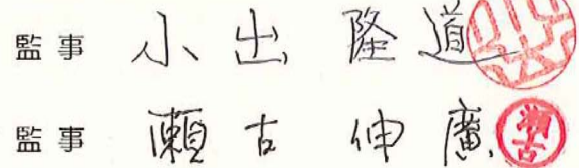 監事 小出 隆道
監事 瀬古 伸廣
瀬古